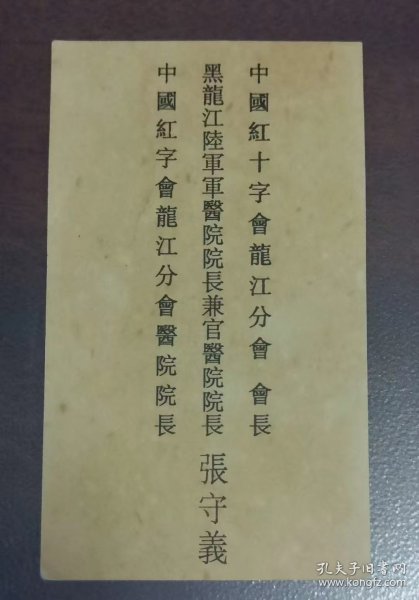 中國紅十字會龍江分會會長
黑龍江陸軍軍醫院院長兼官醫院院長 張守義
中國紅字會龍江分會醫院院長
孔夫子旧书网
www.kongfz.com